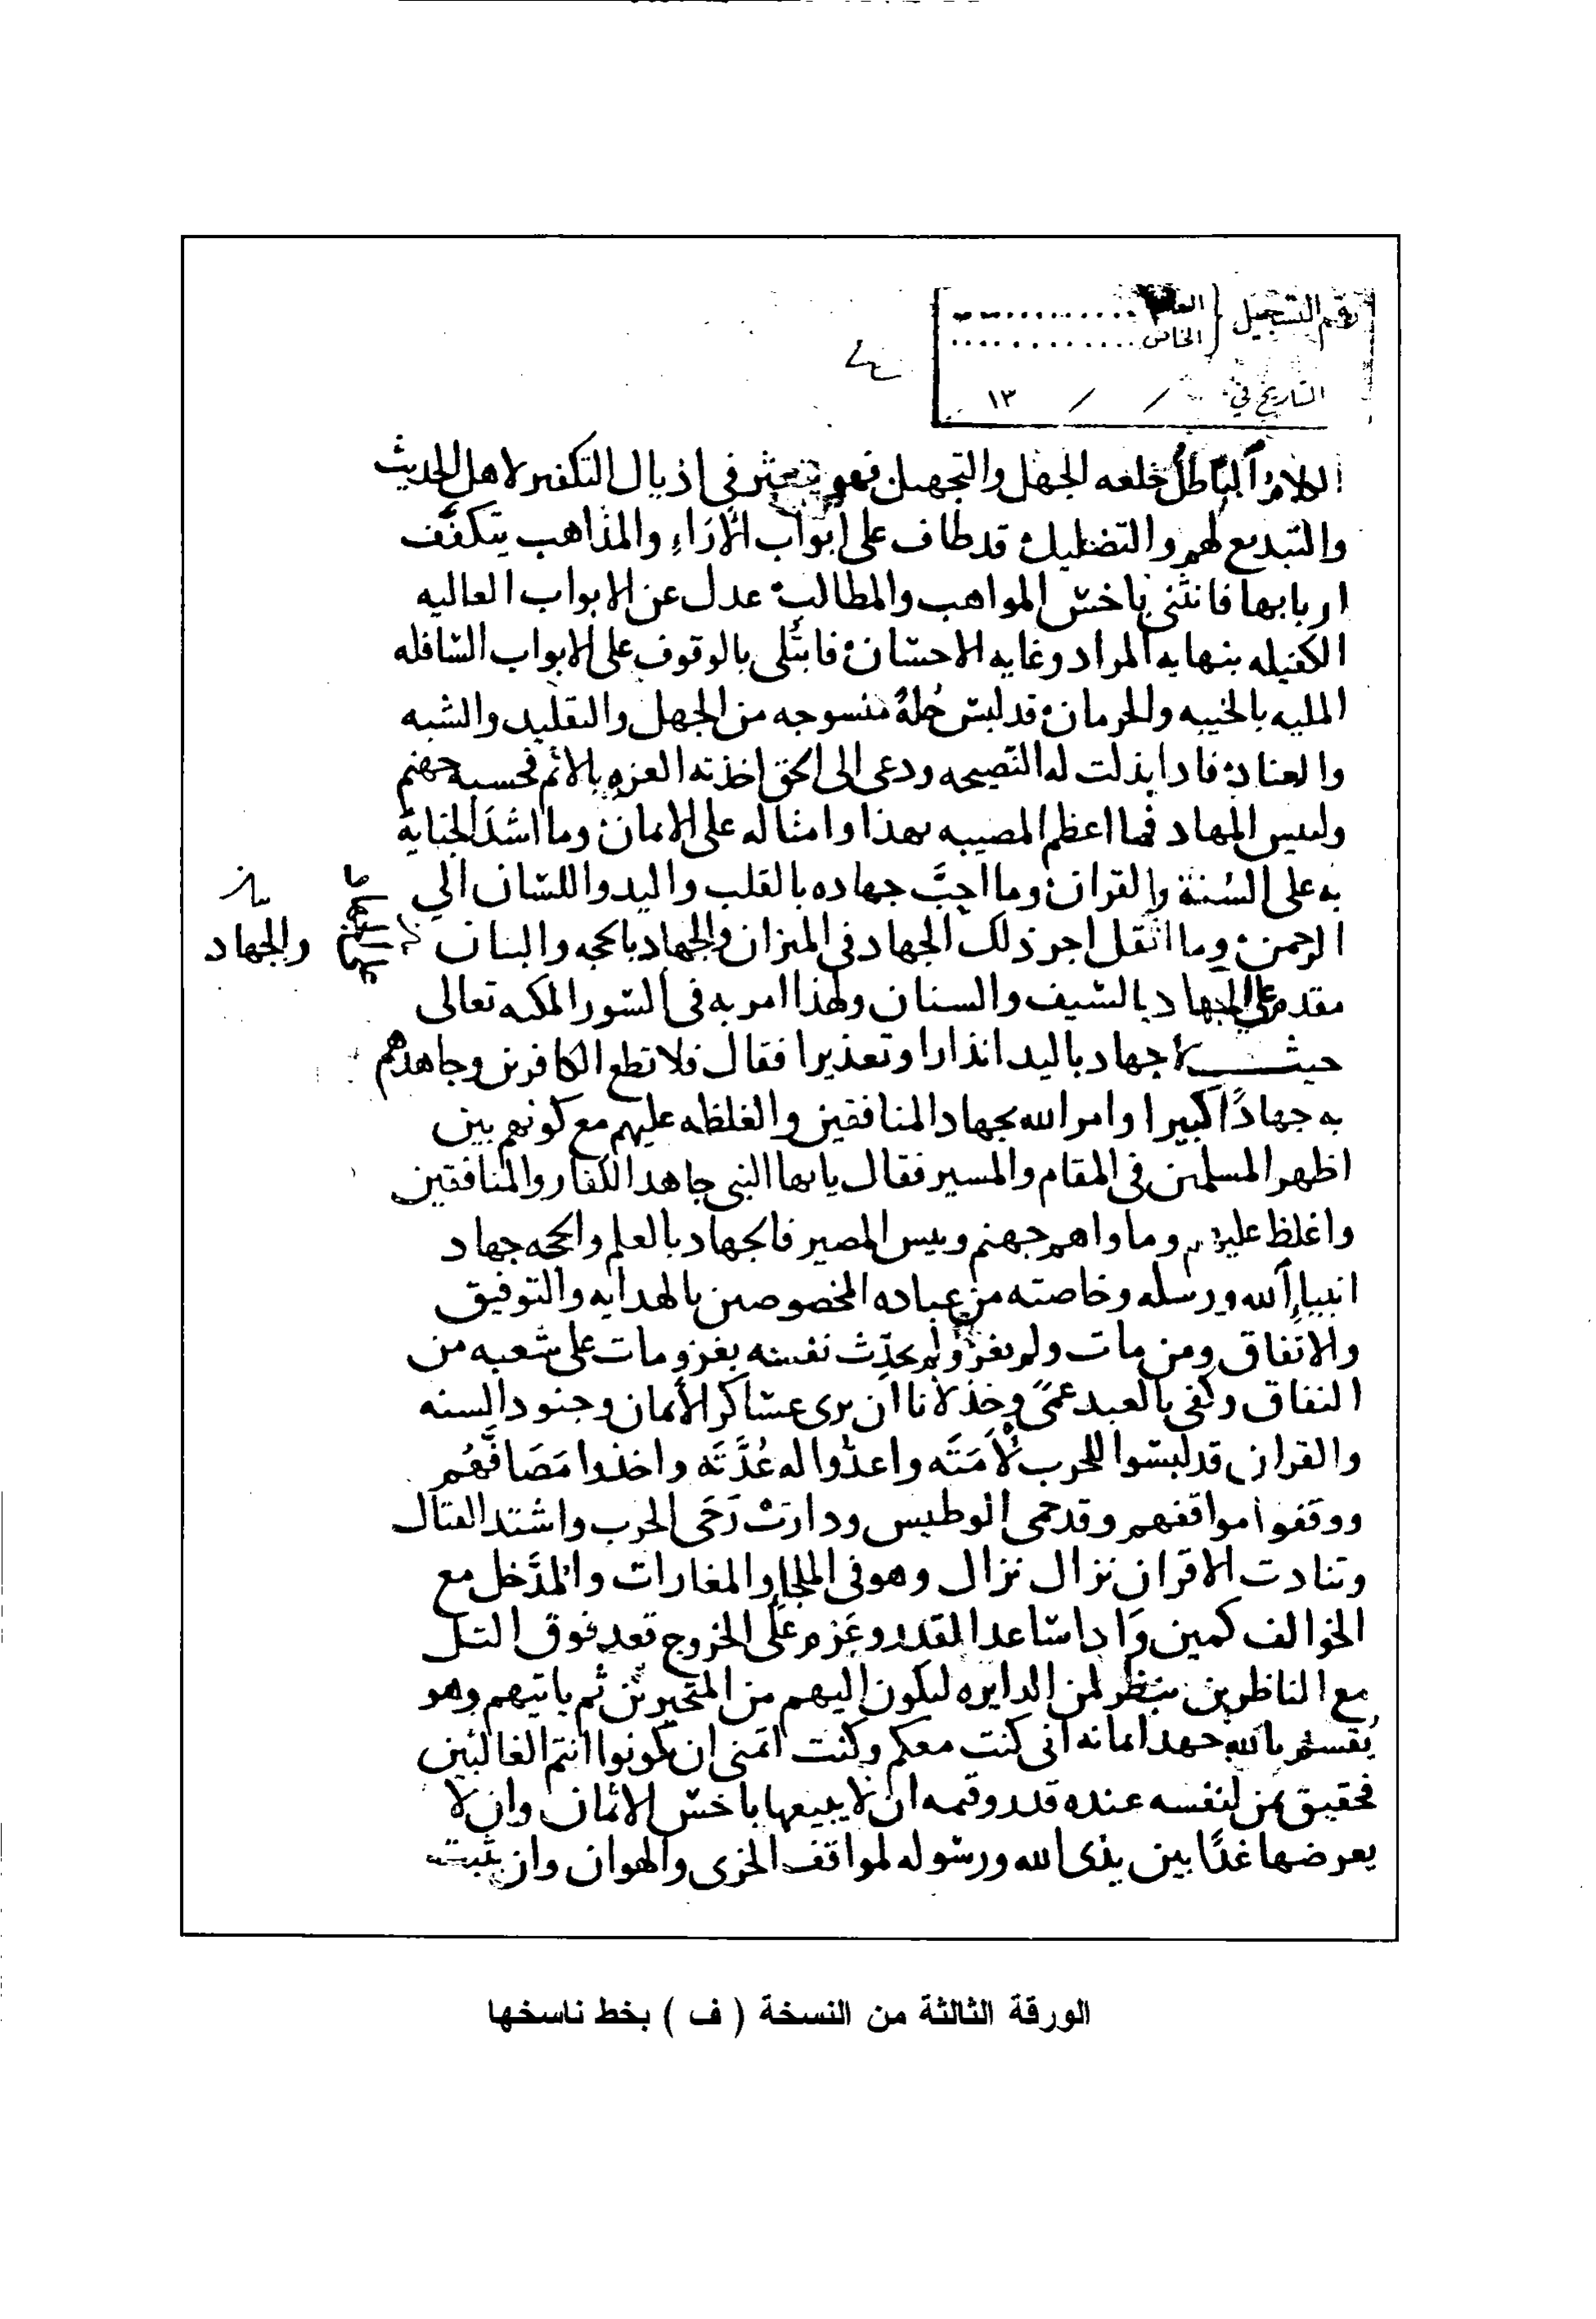 رقم التسجيل { العام
الخاص
التاريخ في / / ١٣
الباطل خلعه الجهل والتجهيل فهو يتعثر في اذيال التكفير لاهل الحديث
والتبديع لهم والتضليل قد طاف على ابواب الاراء والمذاهب يتكفف
اربابها فانثنى باخس المواهب والمطالب عدل عن الابواب العاليه
الكفيله بنهايه المراد وغايه الاحسان فابتلى بالوقوف على الابواب السافله
المليه بالخيبه والحرمان قد لبس حُلةً منسوجه من الجهل والتقليد والشبه
والعناد فاذا بذلت له النصيحه ودعى الى الحق اخذته العزه بالاثم فحسبه جهنم
ولبيس المهاد فما اعظم المصيبه بهذا وامثاله على الايمان وما اشد الجناية
به على السُنة والقران وما احبَّ جهاده بالقلب واليد واللسان الي
الرحمن وما اثقل اجر ذلك الجهاد في الميزان والجهاد بالحجه والبنان
والجهاد
مقدم على الجهاد بالسيف والسنان ولهذا امر به فى السور المكيه تعالى
حيث لا جهاد باليد انذارا وتعذيرا فقال فلا تطع الكافرين وجاهدهم
به جهادًا كبيرا وامر الله بجهاد المنافقين والغلظه عليهم مع كونهم بين
اظهر المسلمين في المقام والمسير فقال يايها النبى جاهد الكفار والمنافقين
واغلظ عليهم وماواهم جهنم وبيس المصير فالجهاد بالعلم والحجه جهاد
انبياء الله ورسله وخاصته من عباده المخصوصين بالهدايه والتوفيق
والاتفاق ومن مات ولم يغز ولم يحدِّث نفسه بغزو مات على شعبه من
النفاق وكفى بالعبد عمًى وخذلانا ان يرى عساكر الأيمان وجنود السنه
والقران قد لبسوا للحرب لَأْمَتَه واعدُّوا له عُدَّتَه واخذوا مَصَافَّهُم
ووقفوا مواقفهم وقد حمى الوطيس ودارتْ رَحَى الحرب واشتد القتال
وتنادت الاقران نزال نزال وهو فى الملجا والمغارات والمدَّخل مع
الخوالف كمين وَاذا ساعد القدر وعَزم علَى الخروج قعد فوق التل
مع الناظرين ينظر لمن الدايره ليكون اليهم من المتحيزين ثم ياتيهم وهو
يُقسم بالله جهد ايمانه انى كنت معكم وكنت اتمنى ان تكونوا انتم الغالبين
فحقيق بمن لنفسه عنده قدر وقيمه ان لا يبيعها باخس الاثمان وان لا
يعرضها غدًا بين يدى الله ورسوله لمواقف الخزى والهوان وان يثبت
الورقة الثالثة من النسخة ( ف ) بخط ناسخها